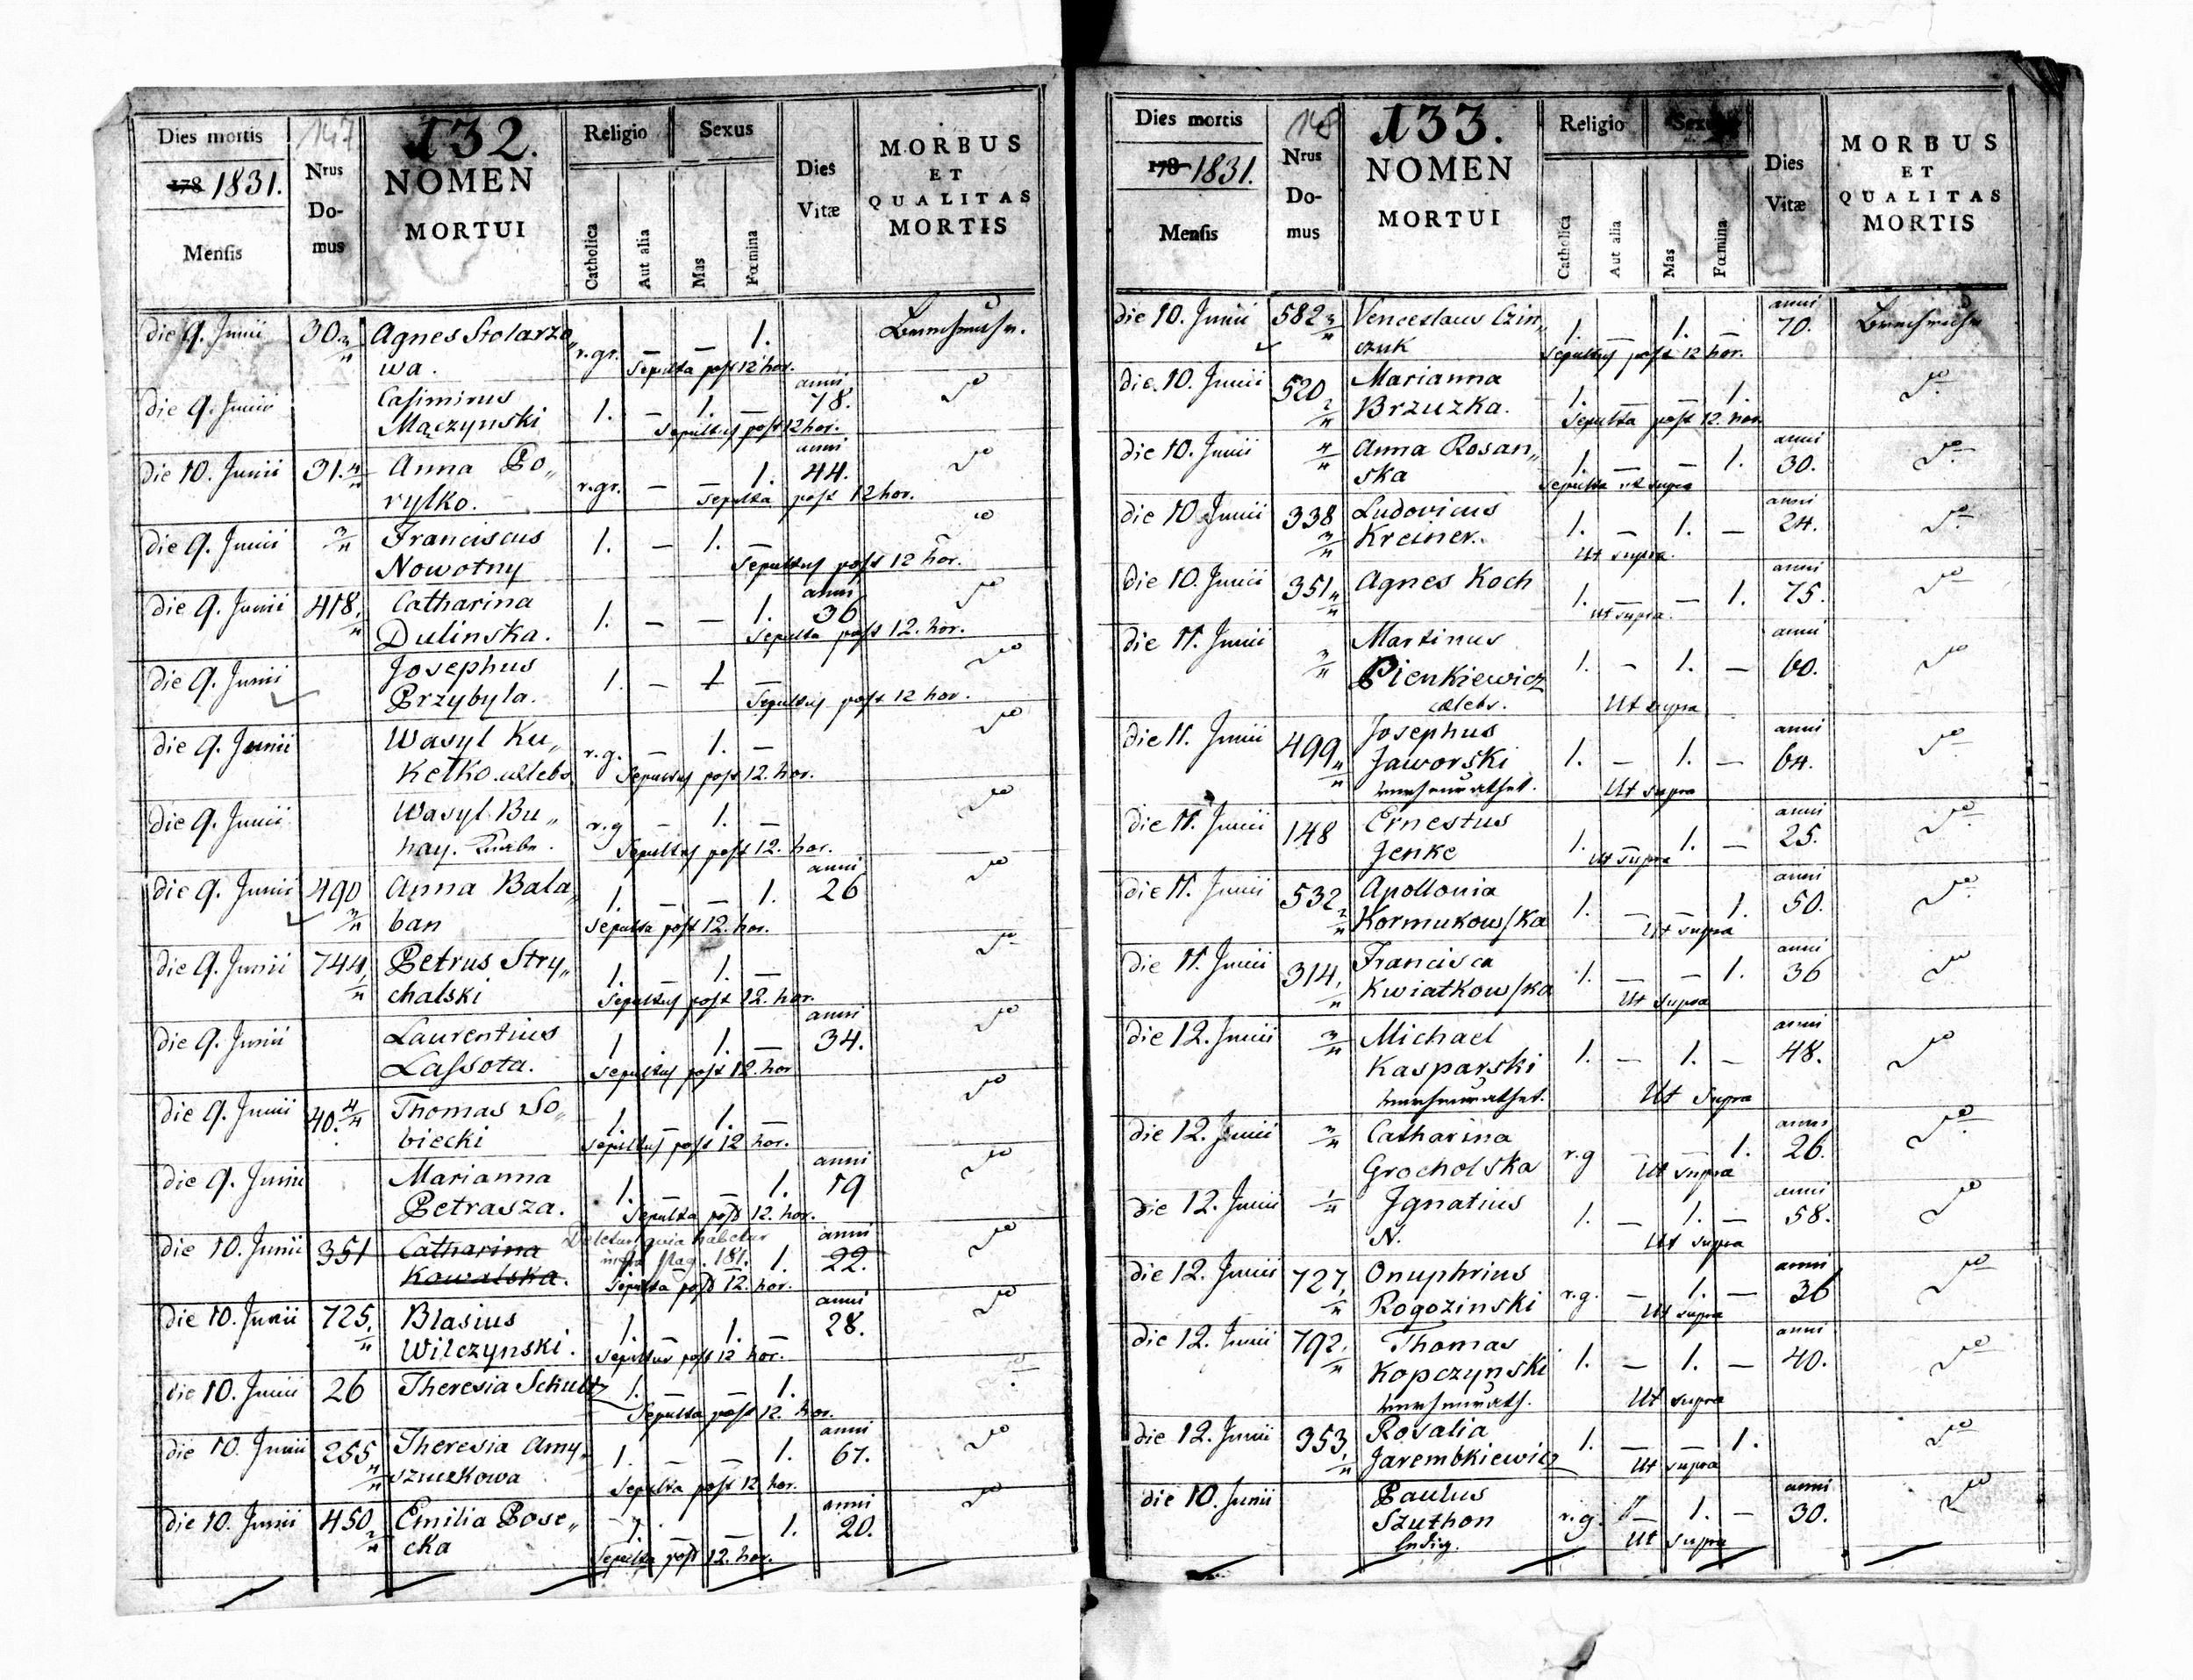 Dies mortis
147
132.
Religio
Sexus
Dies
Vitæ
MORBUS
ET
QUALITAS
MORTIS
178 1831.
Nrus
Do-
mus
NOMEN
MORTUI
Mensis
Catholica
Aut alia
Mas
Fœmina
die 9. Junii 30 3/4 Agnes Stolarzo„ r.gr. — — 1.
wa. Sepulta post 12 hor.
die 9. Junii Casimirus 1. — 1. — anni 78.
Mączynski Sepultus post 12 hor.
die 10. Junii 31 4/4 Anna Po„ r.gr. — — 1. anni 44.
rylko. Sepulta post 12 hor.
die 9. Junii 3/4 Franciscus 1. — 1. —
Nowotny Sepultus post 12 hor.
die 9. Junii 418 Catharina 1. — — 1. anni 36
Dulinska. Sepulta post 12. hor.
die 9. Junii Josephus 1. — 1 —
Przybyla. Sepultus post 12 hor.
die 9. Junii Wasyl Ku„ r.g. — 1. —
Ketko. cælebs Sepultus post 12. hor.
die 9. Junii Wasyl Bu„ r.g — 1. —
hay. Sepultus post 12. hor.
die 9. Junii 490 3/4 Anna Bala„ 1. — — 1. anni 26
ban Sepulta post 12. hor.
die 9. Junii 744 Petrus Stry„ 1. — 1. —
chalski Sepultus post 12. hor.
die 9. Junii Laurentius 1 . 1. — anni 34.
Lassota. Sepultus post 12 hor
die 9. Junii 40. 4/4 Thomas So„ 1. — 1. —
biecki Sepultus post 12 hor.
die 9. Junii Marianna 1. — — 1. anni 19
Petrasza. Sepulta post 12. hor.
die 10. Junii 351 Catharina Deletur quia habetur anni 22.
Kowalska. infra pag. 181. 1.
Sepulta post 12. hor.
die 10. Junii 725 Blasius 1. — 1. — anni 28.
Wilczynski. Sepultus post 12 hor.
die 10. Junii 26 Theresia Schultz 1. — — 1.
Sepulta post 12. hor.
die 10. Junii 255 Theresia Amy„ 1. — — 1. anni 67.
szuzkowa Sepulta post 12 hor.
die 10. Junii 450 Emilia Pose„ 1. — — 1. anni 20.
cka Sepulta post 12. hor.
Dies mortis
148
133.
Religio
Sexus
Dies
Vitæ
MORBUS
ET
QUALITAS
MORTIS
178 1831.
Nrus
Do-
mus
NOMEN
MORTUI
Mensis
Catholica
Aut alia
Mas
Fœmina
die 10. Junii 582 3/4 Venceslaus Czin„ 1. — 1. — anni 70.
czuk Sepultus post 12 hor.
die 10. Junii 520 2/4 Marianna 1. — — 1.
Brzuzka. Sepulta post 12. hor.
die 10. Junii 4/4 Anna Rosan„ 1. — — 1. anni 30.
ska Sepulta ut supra
die 10. Junii 338 3/4 Ludovicus 1. — 1. — anni 24.
Kreiner. Ut supra.
die 10. Junii 351 Agnes Koch 1. — — 1. anni 75.
Ut supra.
die 11. Junii 3/4 Martinus 1. — 1. — anni 60.
Pienkiewicz
cælebs. Ut supra
die 11. Junii 499 Josephus 1. — 1. — anni 64.
Jaworski
verheurathet. Ut supra
die 11. Junii 148 Ernestus 1. — 1. — anni 25.
Jenke Ut supra
die 11. Junii 532 Apollonia 1. — — 1. anni 50.
Kormukowska Ut supra
die 11. Junii 314 Francisca 1. — — 1. anni 36
Kwiatkowska Ut supra
die 12. Junii 3/4 Michael 1. — 1. — anni 48.
Kasparski
verheurathet. Ut Supra
die 12. Junii 3/4 Catharina r.g — — 1. anni 26.
Grocholska Ut supra
die 12. Junii 1/4 Ignatius 1. — 1. — anni 58.
N. Ut supra
die 12. Junii 727 Onuphrius r.g. — 1. — anni 36
Rogozinski Ut supra
die 12. Junii 792 Thomas 1. — 1. — anni 40.
Kopczynski
verheurath. Ut supra
die 12. Junii 353 Rosalia 1. — — 1.
Jarembkiewicz Ut supra
die 10. Junii Paulus r.g. — 1. — anni 30.
Szuthon
ledig. Ut supra